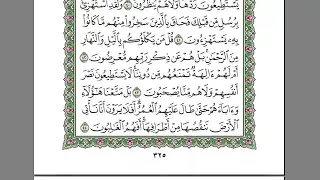 يَسْتَطِيعُونَ رَدَّهَا وَلَا هُمْ يُنظَرُونَ ٤٠ وَلَقَدِ اسْتُهْزِئَ
بِرُسُلٍ مِّن قَبْلِكَ فَحَاقَ بِالَّذِينَ سَخِرُوا مِنْهُم مَّا كَانُوا
بِهِ يَسْتَهْزِءُونَ ٤١ قُلْ مَن يَكْلَؤُكُم بِاللَّيْلِ وَالنَّهَارِ
مِنَ الرَّحْمَٰنِ بَلْ هُمْ عَن ذِكْرِ رَبِّهِم مُّعْرِضُونَ ٤٢
أَمْ لَهُمْ آلِهَةٌ تَمْنَعُهُم مِّن دُونِنَا لَا يَسْتَطِيعُونَ نَصْرَ
أَنفُسِهِمْ وَلَا هُم مِّنَّا يُصْحَبُونَ ٤٣ بَلْ مَتَّعْنَا هَٰؤُلَاءِ
وَآبَاءَهُمْ حَتَّىٰ طَالَ عَلَيْهِمُ الْعُمُرُ أَفَلَا يَرَوْنَ أَنَّا نَأْتِي
الْأَرْضَ نَنقُصُهَا مِنْ أَطْرَافِهَا أَفَهُمُ الْغَالِبُونَ ٤٤
٣٢٥